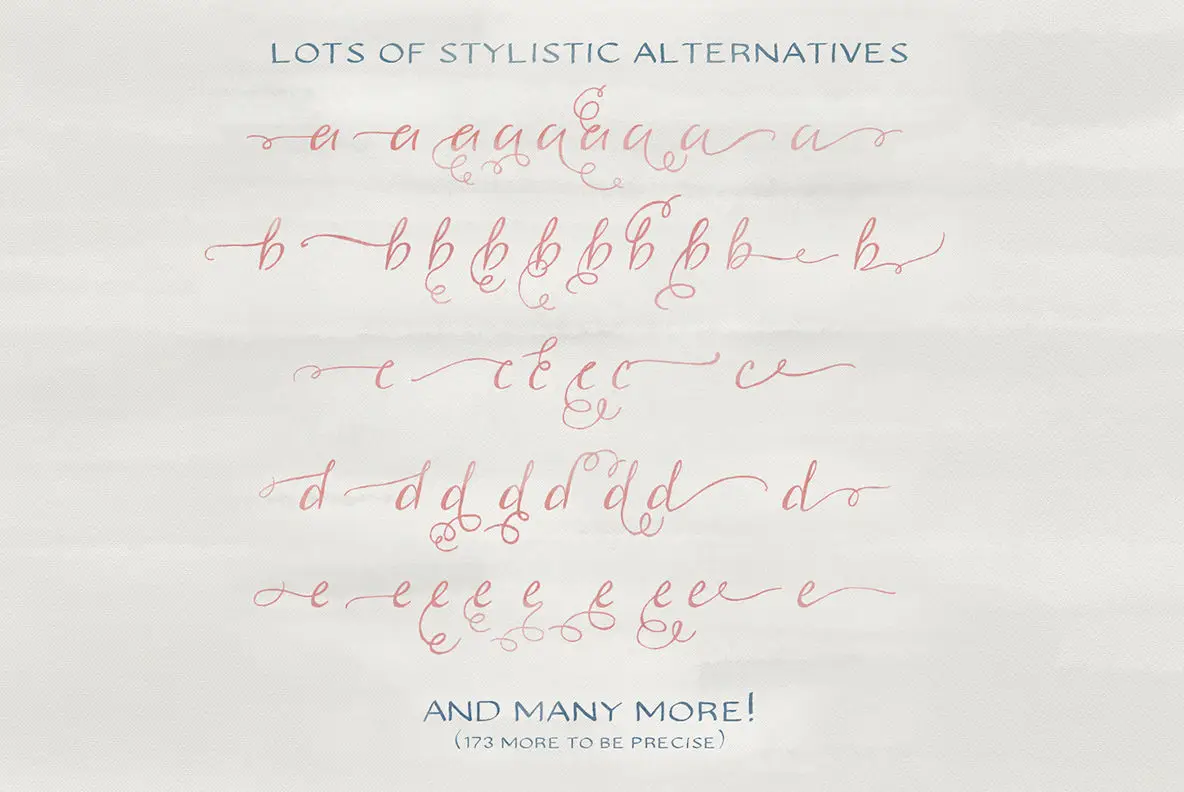 LOTS OF STYLISTIC ALTERNATIVES
a a a a a a a a a
b b b b b b b b b b
c c c c c c
d d d d d d d d
e e e e e e e e e
AND MANY MORE!
(173 MORE TO BE PRECISE)